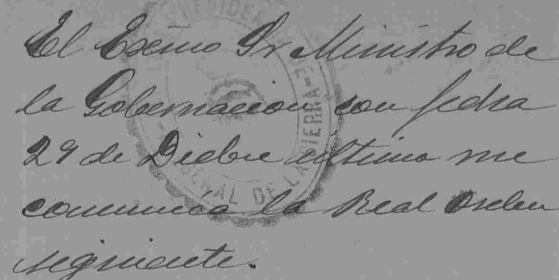 El Exćmo Sr Ministro de
la Gobernacion con fecha
29 de Diebre ultimo me
comunica la Real Orden
siguiente.
DE LA SIERRA